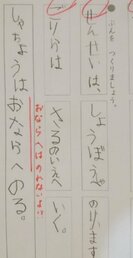 ぶんを つくりましょう。
せんせいは、しょうぼうしゃ のります
ごりらは さるのいえへ いく。
おならへはのれないよ!!
しゃちょうはおならへのる。